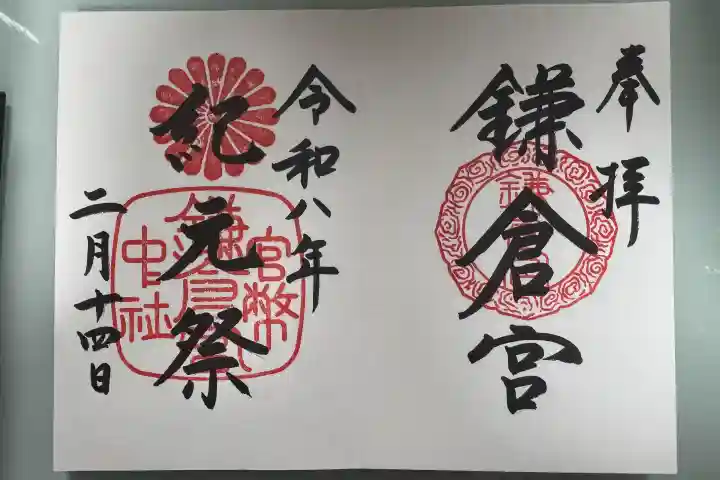 奉拝
鎌倉宮
令和八年
紀元祭
二月十四日
官幣
鎌倉宮
中社